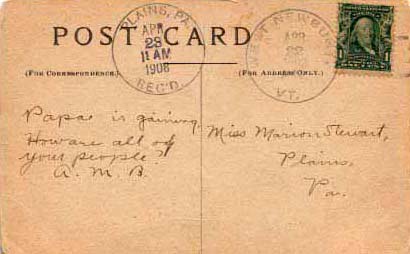 PLAINS, PA.
APR
23
11 AM
1908
REC'D.
WEST NEWBURY
APR
22
VT.
POST CARD
(FOR CORRESPONDENCE.)
(FOR ADDRESS ONLY.)
Papa is gaining.
How are all of
your people?
A. M. B.
Miss Marion Stewart,
Plains,
Pa.